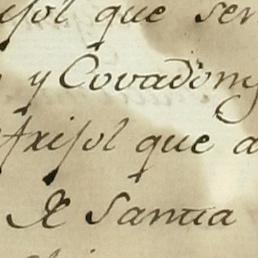 que ser
y Covadong
frisol que a
De Santa